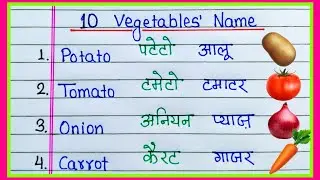 10 Vegetables' Name
1. Potato पटेटो आलू
2. Tomato टमेटो टमाटर
3. Onion अनियन प्याज़
4. Carrot कैरट गाजर